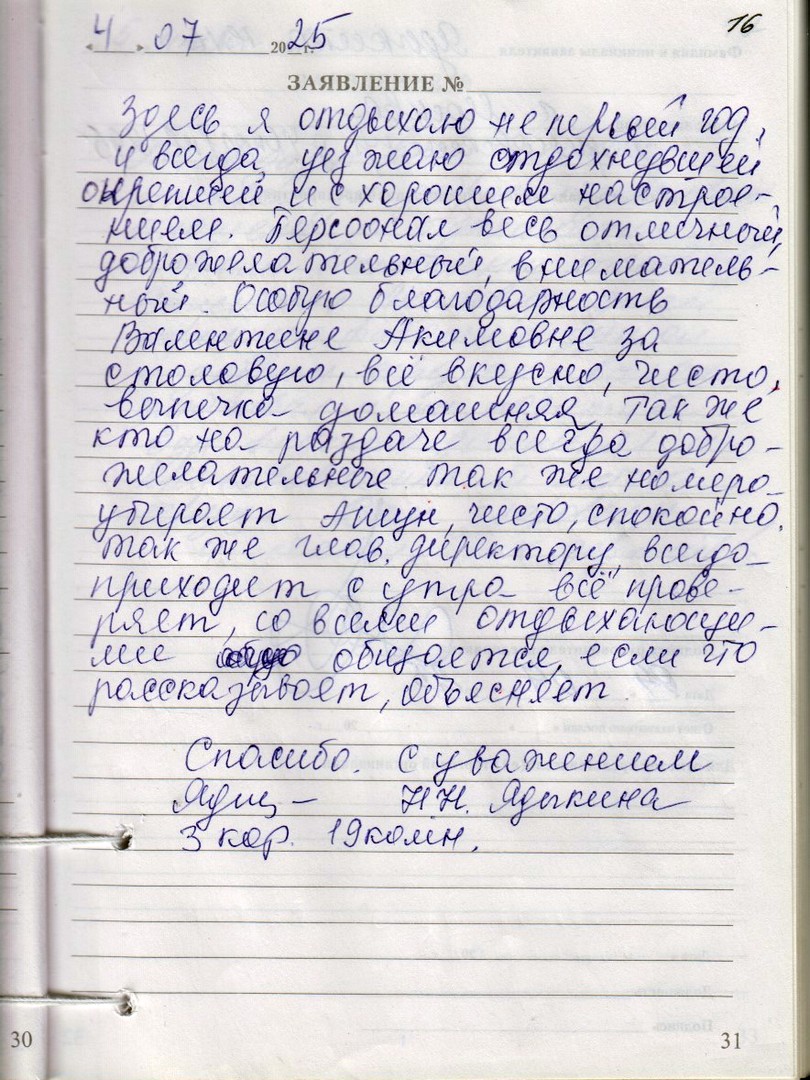 16
«4» 07 2025 г.
ЗАЯВЛЕНИЕ №
Здесь я отдыхаю не первый год,
и всегда уезжаю отдохнувшей
окрепшей и с хорошем настрое-
нием. Персоонал весь отличный,
доброжелательный, вниматель-
ный. Особую благодарность
Валентине Акимовне за
столовую, всё вкусно, чисто,
выпечка домашняя, так же
кто на раздаче всегда добро-
желательные так же номера
убирает чисто, спокойно,
так же глав. директору, всегда
приходит с утра всё прове-
ряет, со всеми отдыхающи-
ми общается, если что
рассказывает, объясняет.
Спасибо. С уважением
Н.Н. Ядыкина
3 кор. 19 комн.
30
31